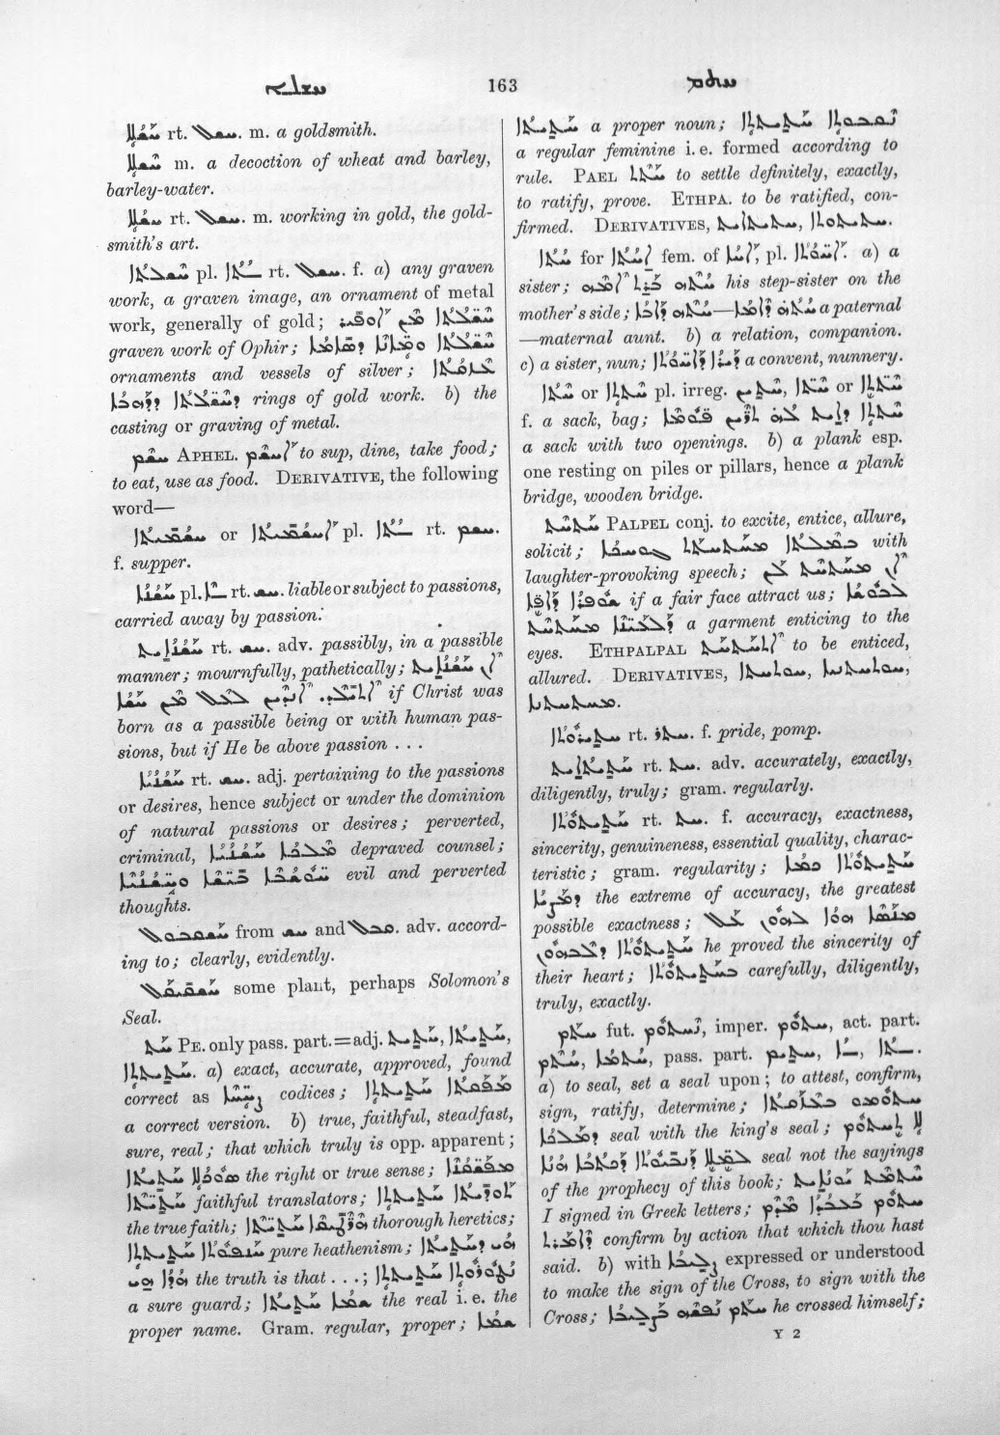 ܚܫܠܐ 163 ܚܬܡ
ܚܫܠܐ rt. ܚܫܠ. m. a goldsmith.
ܚܫܠܐ m. a decoction of wheat and barley,
barley-water.
ܚܫܠܐ rt. ܚܫܠ. m. working in gold, the gold-
smith's art.
ܚܫܠܬܐ pl. rt. ܚܫܠ. f. a) any graven
work, a graven image, an ornament of metal
work, generally of gold; ܚܫܠܬܐ ܡܢ ܐܘܦܝܪ
graven work of Ophir; ܚܫܠܬܐ ܘܡܐܢܐ ܕܣܐܡܐ
ornaments and vessels of silver;
ܕܚܫܠܬܐ ܕܕܗܒܐ rings of gold work. b) the
casting or graving of metal.
ܚܫܡ APHEL. ܐܚܫܡ to sup, dine, take food;
to eat, use as food. DERIVATIVE, the following
word—
ܚܫܡܝܬܐ or ܐܚܫܡܝܬܐ pl. rt. ܚܫܡ.
f. supper.
ܚܫܘܫܐ pl. rt. ܚܫ. liable or subject to passions,
carried away by passion.
rt. ܚܫ. adv. passibly, in a passible
manner; mournfully, pathetically;
ܐܢ ܐܬܝܠܕ. ܐܢܕܝܢ ܠܥܠ ܡܢ ܚܫܐ if Christ was
born as a passible being or with human pas-
sions, but if He be above passion . . .
rt. ܚܫ. adj. pertaining to the passions
or desires, hence subject or under the dominion
of natural passions or desires; perverted,
criminal, ܡܠܟܐ depraved counsel;
ܚܘܫܒܐ ܒܝܫܐ evil and perverted
thoughts.
from and adv. accord-
ing to; clearly, evidently.
some plant, perhaps Solomon's
Seal.
ܚܬ PE. only pass. part.=adj. ܚܬܝܬ, ܚܬܝܬܐ,
ܚܬܝܬܬܐ. a) exact, accurate, approved, found
correct as ܨܚܚܐ codices; ܡܦܩܬܐ ܚܬܝܬܬܐ
a correct version. b) true, faithful, steadfast,
sure, real; that which truly is opp. apparent;
ܣܘܟܠܐ ܚܬܝܬܐ the right or true sense; ܡܦܫܩܢܐ
ܚܬܝܬܐ faithful translators; ܬܘܕܝܬܐ ܚܬܝܬܬܐ
the true faith; ܚܬܝܬܐ thorough heretics;
ܚܢܦܘܬܐ ܚܬܝܬܬܐ pure heathenism; ܗܘ ܕܚܬܝܬܐ
ܗܘܐ the truth is that . . .; ܢܛܘܪܬܐ ܚܬܝܬܬܐ
a sure guard; ܫܡܐ ܚܬܝܬܐ the real i. e. the
proper name. Gram. regular, proper; ܫܡܐ
ܚܬܝܬܐ a proper noun; ܢܩܒܬܐ ܚܬܝܬܬܐ
a regular feminine i. e. formed according to
rule. PAEL ܚܬܬ to settle definitely, exactly,
to ratify, prove. ETHPA. to be ratified, con-
firmed. DERIVATIVES, ܚܬܝܬܐܝܬ, ܚܬܝܬܘܬܐ.
ܚܬܐ for fem. of ܐܚܐ, pl. ܐܚܘܬܐ. a) a
sister; ܚܬܗ ܒܪܬ ܐܡܗ his step-sister on the
mother's side; ܚܬܗ ܕܐܡܐ—ܚܬܗ ܕܐܒܐ a paternal
—maternal aunt. b) a relation, companion.
c) a sister, nun; ܕܝܪܐ ܕܐܚܘܬܐ a convent, nunnery.
ܚܬܐ or pl. irreg. or
f. a sack, bag;
a sack with two openings. b) a plank esp.
one resting on piles or pillars, hence a plank
bridge, wooden bridge.
ܚܬܚܬ PALPEL conj. to excite, entice, allure,
solicit; with
laughter-provoking speech; ܐܢ ܡܚܬܚܬ ܠܢ
ܫܘܦܪܐ if a fair face attract us; ܠܒܘܫܐ
ܕܠܥܝܢܐ ܡܚܬܚܬ a garment enticing to the
eyes. ETHPALPAL ܐܬܚܬܚܬ to be enticed,
allured. DERIVATIVES,
rt. ܚܬܪ. f. pride, pomp.
ܚܬܝܬܐܝܬ rt. ܚܬ. adv. accurately, exactly,
diligently, truly; gram. regularly.
ܚܬܝܬܘܬܐ rt. ܚܬ. f. accuracy, exactness,
sincerity, genuineness, essential quality, charac-
teristic; gram. regularity; ܟܡܐ ܚܬܝܬܘܬܐ
ܕܡܨܝܐ the extreme of accuracy, the greatest
possible exactness; ܡܢܣܐ ܗܘܐ ܠܗܘܢ ܥܠ
ܚܬܝܬܘܬܐ ܕܠܒܗܘܢ he proved the sincerity of
their heart; ܒܚܬܝܬܘܬܐ carefully, diligently,
truly, exactly.
ܚܬܡ fut. ܢܚܬܘܡ, imper. ܚܬܘܡ, act. part.
ܚܬܡ, ܚܬܡܐ, pass. part. ܚܬܝܡ,
a) to seal, set a seal upon; to attest, confirm,
sign, ratify, determine; ܚܬܘܡܘ ܒܥܙܩܬܐ
ܕܡܠܟܐ seal with the king's seal; ܠܐ ܬܚܬܘܡ
ܠܡܠܐ ܕܢܒܝܘܬܐ ܕܟܬܒܐ ܗܢܐ seal not the sayings
of the prophecy of this book; ܚܬܡܬ ܝܘܢܐܝܬ
I signed in Greek letters; ܚܬܘܡ ܒܥܒܕܐ ܡܕܡ
ܕܐܡܪܬ confirm by action that which thou hast
said. b) with ܨܠܝܒܐ expressed or understood
to make the sign of the Cross, to sign with the
Cross; ܚܬܡ ܢܦܫܗ ܒܨܠܝܒܐ he crossed himself;
Y 2